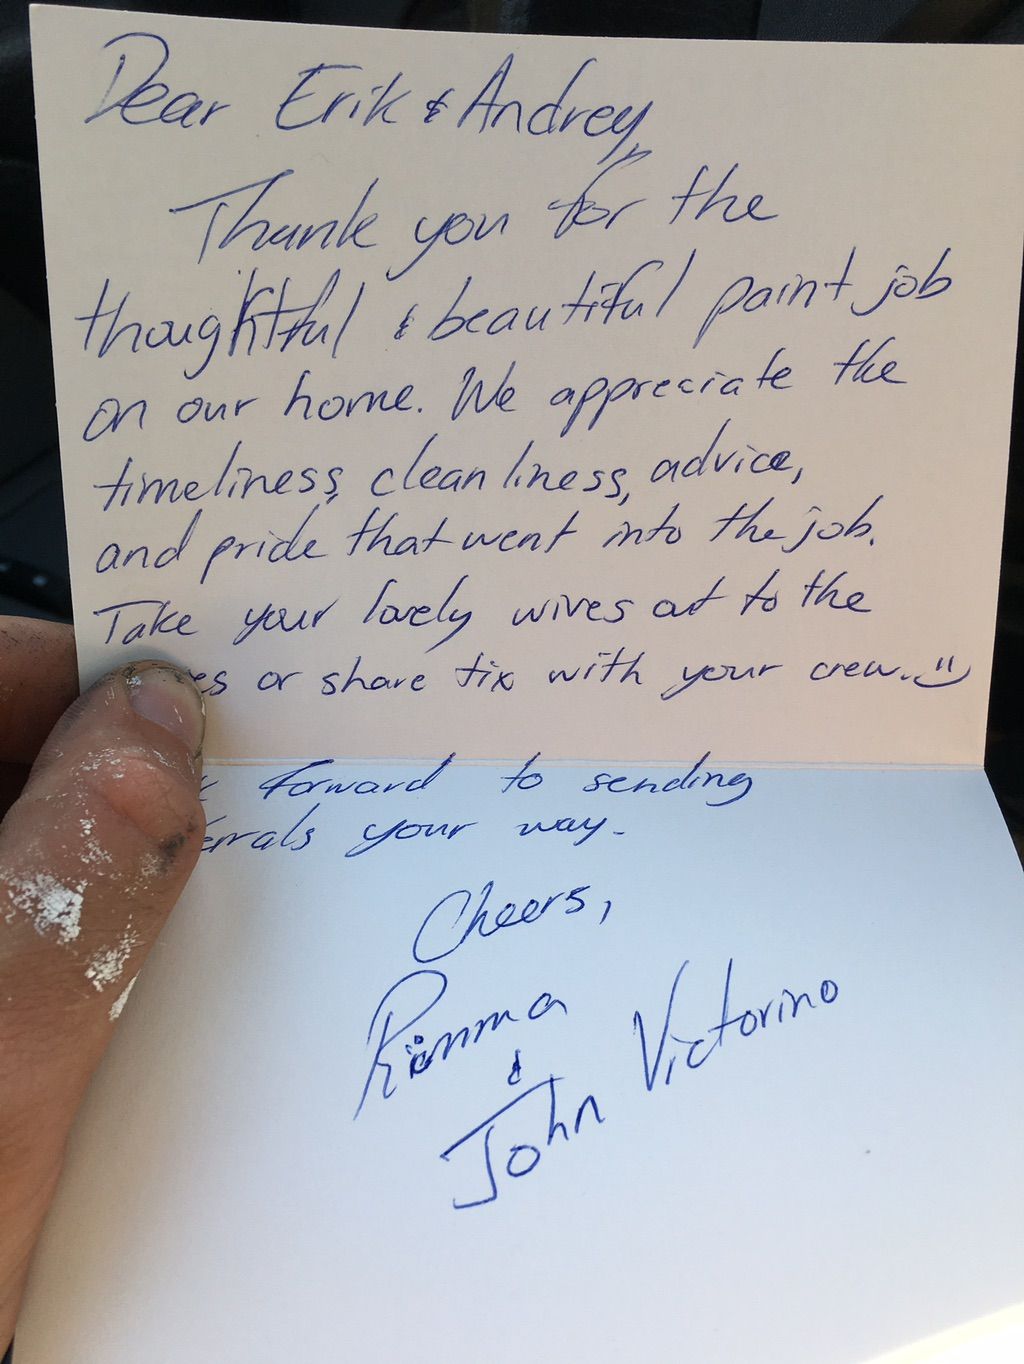 Dear Erik & Andrey,
Thank you for the
thoughtful & beautiful paint job
on our home. We appreciate the
timeliness, cleanliness, advice,
and pride that went into the job.
Take your lovely wives out to the
es or share tix with your crew. :)
forward to sending
errals your way.
Cheers,
Rimma
&
John Victorino